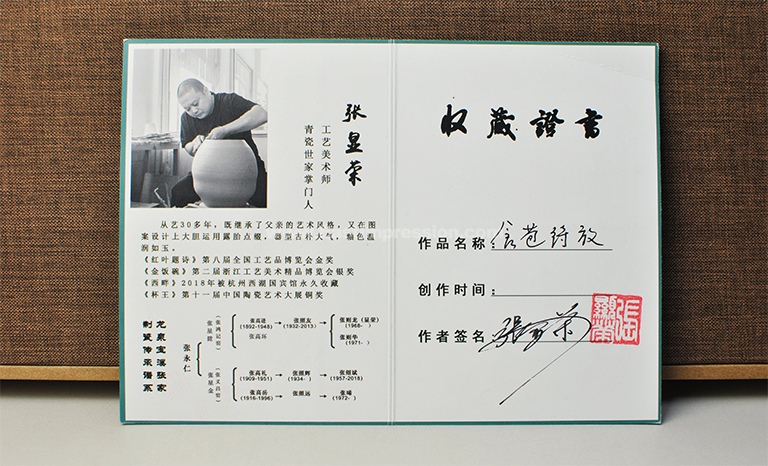 张显荣
工艺美术师
青瓷世家掌门人
从艺30多年，既继承了父亲的艺术风格，又在图
案设计上大胆运用露胎点缀，器型古朴大气，釉色温
润如玉。
《红叶题诗》第八届全国工艺品博览会金奖
《金饭碗》第二届浙江工艺美术精品博览会银奖
《西畔》2018年被杭州西湖国宾馆永久收藏
《杯王》第十一届中国陶瓷艺术大展铜奖
龙泉宝溪张家
制瓷传承谱系
张永仁
张高进 → 张照友 → 张则龙（显荣）
(1892-1948) (1932-2013) (1968- )
张高环 张则华
(1971- )
张高礼 → 张照辉 → 张绍斌
(1909-1951) (1934- ) (1957-2018)
张高岳 → 张照远 →
(1916-1996) (1972- )
收藏證書
作品名称：含苞待放
创作时间：
作者签名 张显荣